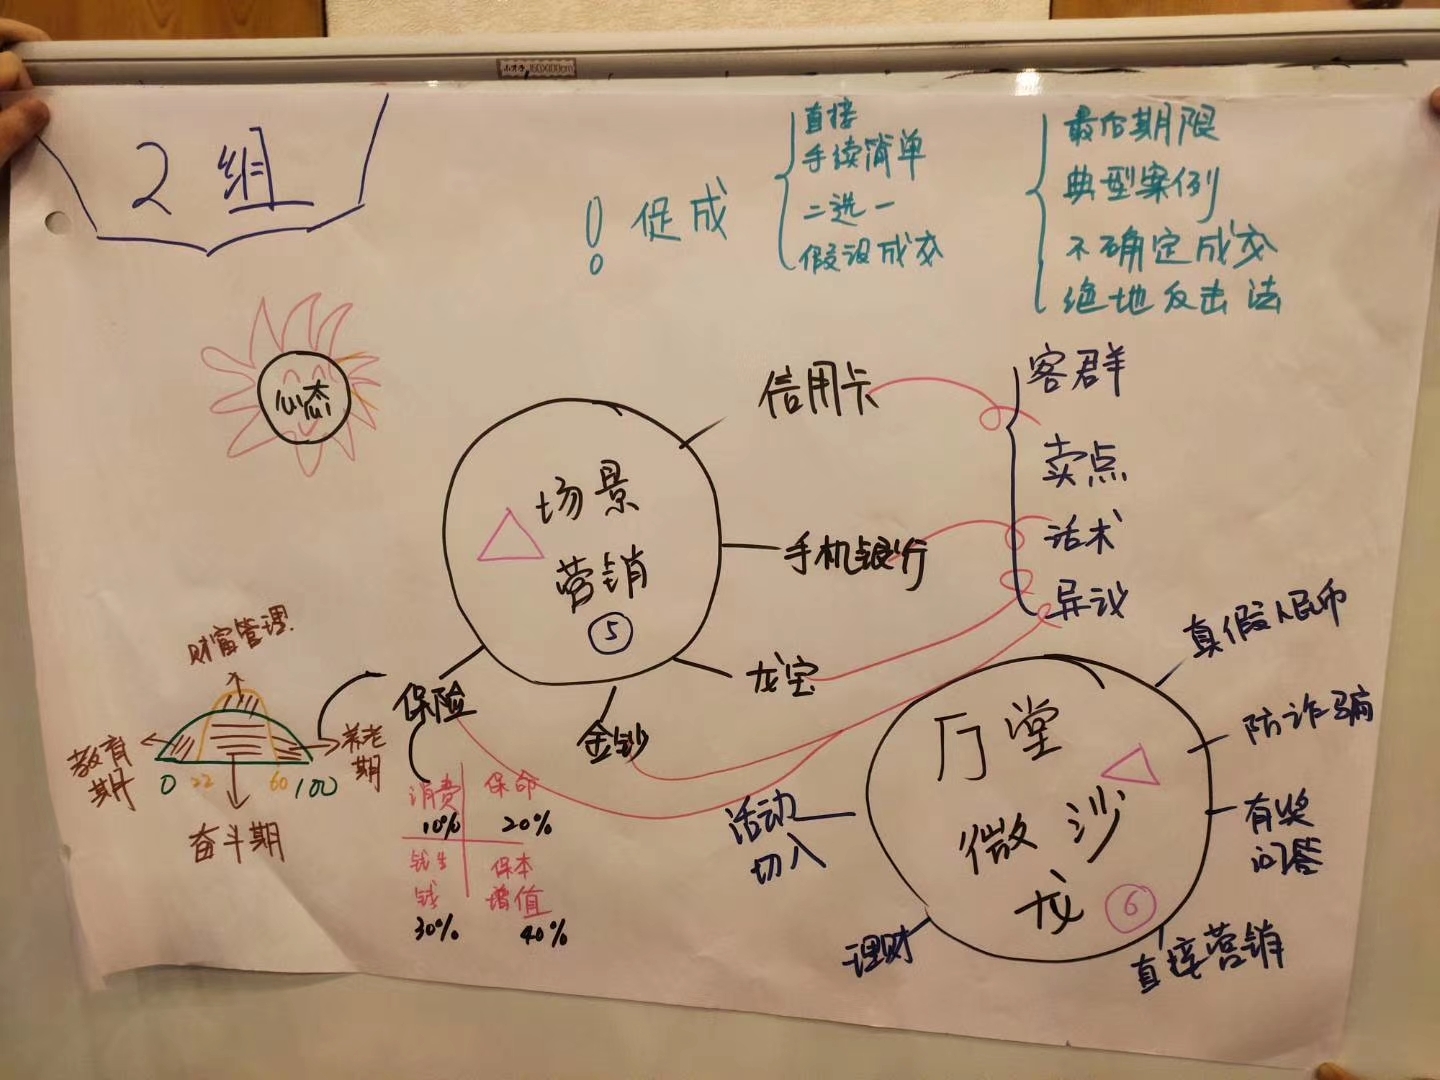 2组
! 促成
直接
手续简单
二选一
假设成交
最后期限
典型案例
不确定成交
绝地反击法
心态
场景
营销
5
信用卡
手机银行
龙宝
金钞
保险
客群
卖点
话术
异议
财富管理
教育
期
养老
期
0 22 60 100
奋斗期
消费
10%
保命
20%
钱生
钱
30%
保本
增值
40%
厅堂
微沙
龙
6
真假人民币
防诈骗
有奖
问答
直接营销
理财
活动
切入